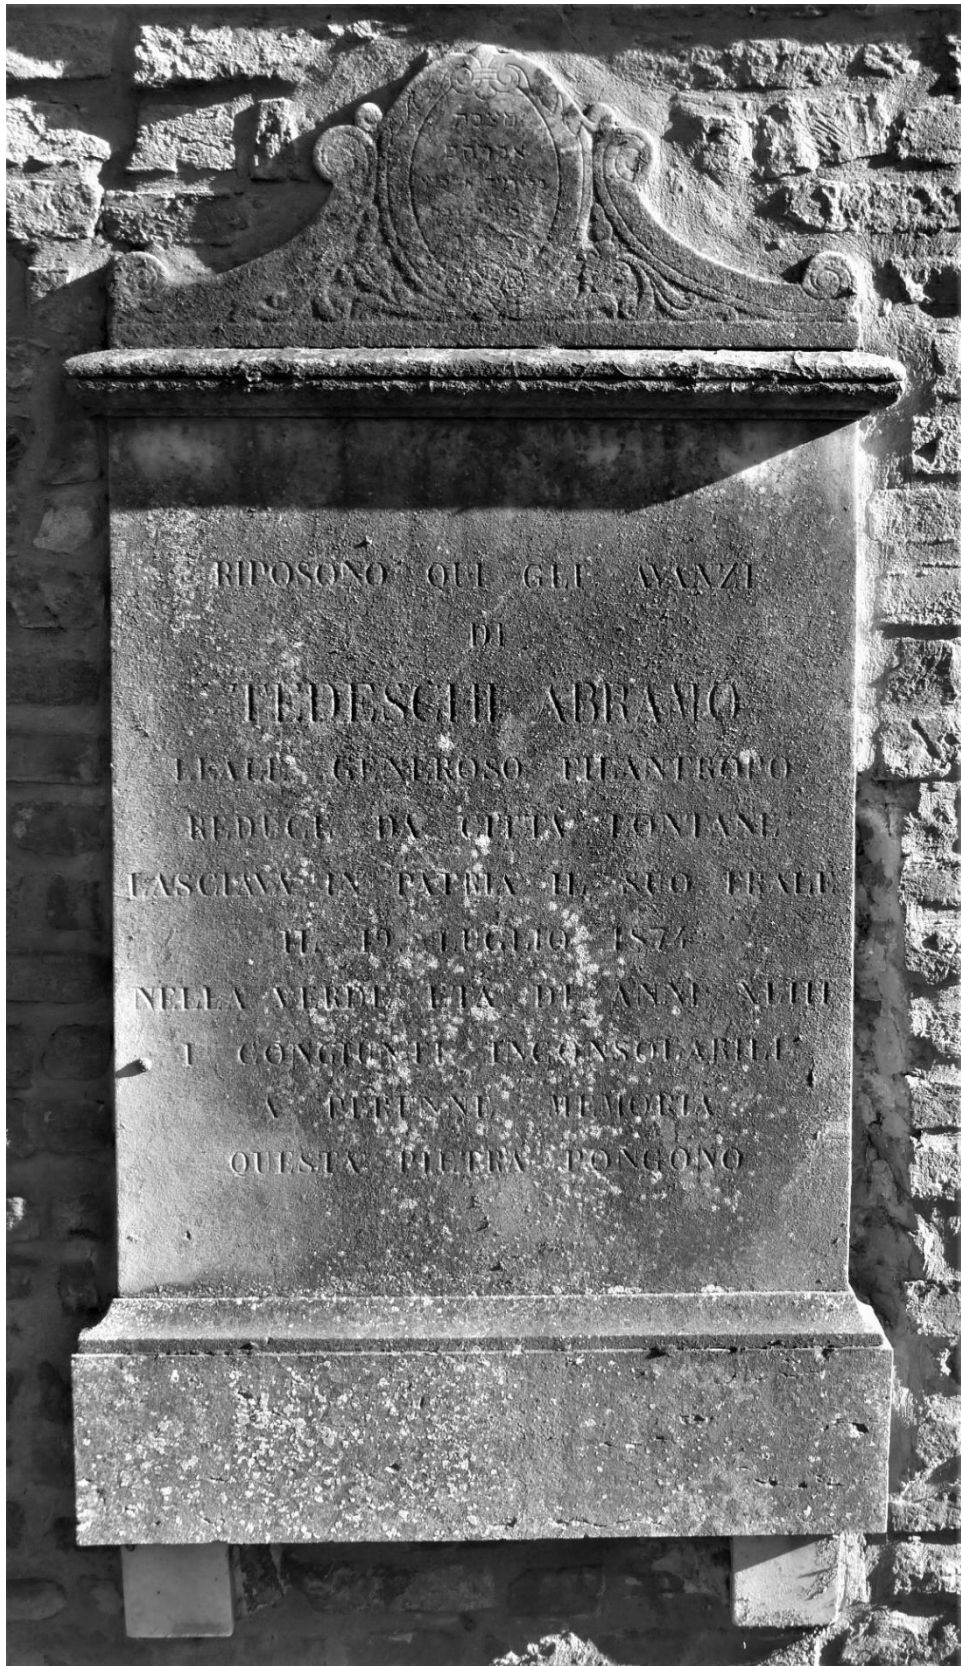 מצבת
אברהם
RIPOSONO QUI GLI AVANZI
DI
TEDESCHI ABRAMO
LEALE GENEROSO FILANTROPO
REDUCE DA CITTÀ LONTANE
LASCIAVA IN PATRIA IL SUO FRALE
IL 19 LUGLIO 1874
NELLA VERDE ETÀ DI ANNI XLIII
I CONGIUNTI INCONSOLABILI
A PERENNE MEMORIA
QUESTA PIETRA PONGONO